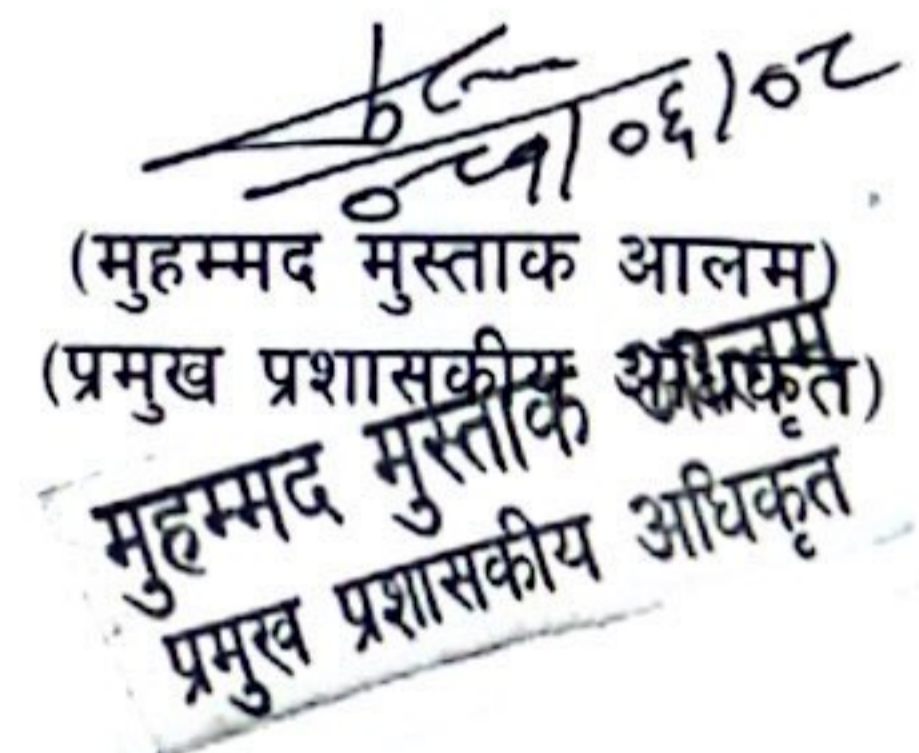 ०८१/०६/०८
(मुहम्मद मुस्ताक आलम)
(प्रमुख प्रशासकीय अधिकृत)
मुहम्मद मुस्ताक आलम
प्रमुख प्रशासकीय अधिकृत